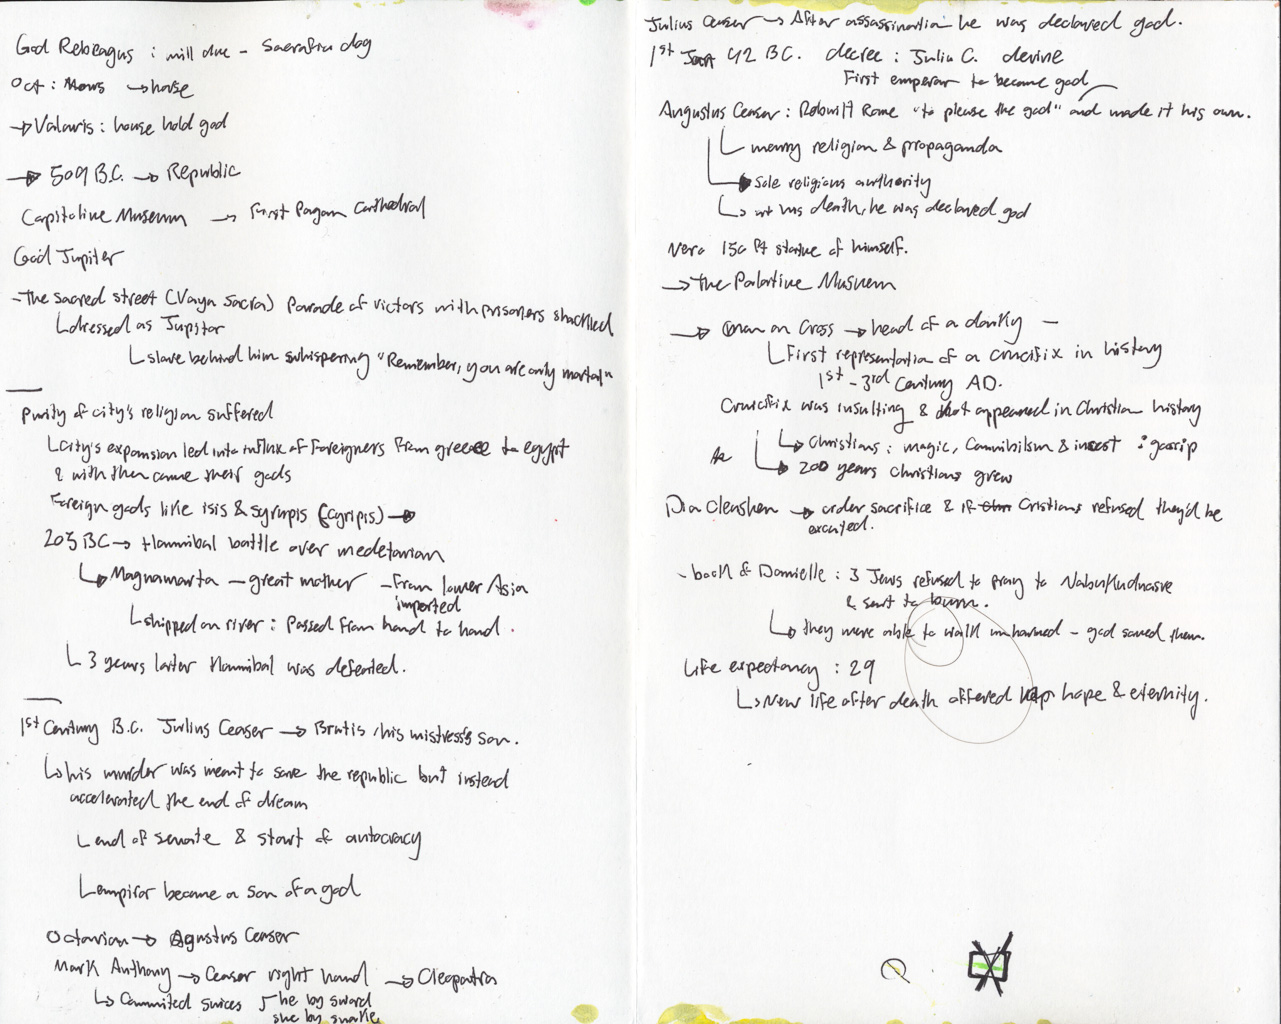 God Rebeagus : mill due - Sacrafice dog
Oct : Mows → horse
→ Valauris : house hold god
→ 509 B.C. → Republic
Capitoline Museum → First Pagan Cathedral
God Jupiter
- The sacred street (Vaya Sacra) Parade of victors with prisoners shackled
dressed as Jupitor
slave behind him whispering "Remember, you are only mortal"
Purity of city's religion suffered
City's expansion led into influx of foreigners from greece to egypt
& with them came their gods
Foreign gods like isis & syrupis (cyripis) →
203 BC → Hannibal battle over medetarian
Magnamarta - great mother - From lower Asia
imported
shipped on river : Passed from hand to hand.
3 years later Hannibal was defeated.
1st Century B.C. Julius Ceaser → Brutis / his mistress's son.
his murder was meant to save the republic but instead
accelerated the end of dream
end of senate & start of autocracy
empiror became a son of a god
Octavian → Agustus Ceaser
Mark Anthony → Ceaser right hand → Cleopatra
Commited suices he by sword
she by snake
Julius Ceaser → After assassination he was declared god.
1st Jan 42 BC. decree : Juliu C. devine
First emperor to become god
Angustus Ceaser : Rebuilt Rome "to please the god" and made it his own.
merry religion & propaganda
Sole religious authority
at his death, he was declared god
Nero 150 ft statue of himself.
→ The Palatine Museum
→ man on Cross → head of a donkey -
First representation of a crucifix in history
1st - 3rd Century AD.
Crucifix was insulting & appeared in Christian history
Christians : magic, Cannibilsm & incest : gossip
200 years Christians grew
Dia Cleashen → order sacrifice & if Cristians refused they'd be
excuted.
- book of Danielle : 3 Jews refused to pray to Nabukudnasre
& sent to burn.
they were able to walk unharmed - god saved them.
Life expectancy : 29
New life after death offered hope & eternity.